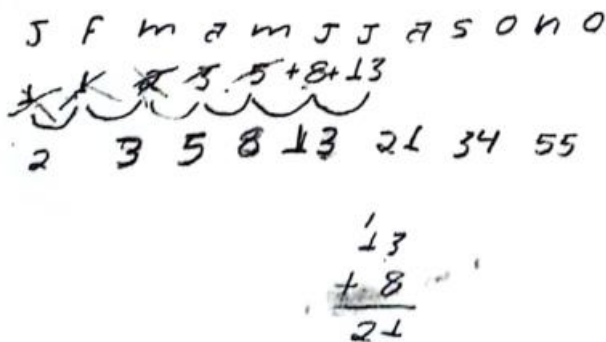 J f m a m J J a s o n o
1 1 2 3 5 +8+13
2 3 5 8 13 21 34 55
1
13
+ 8
21